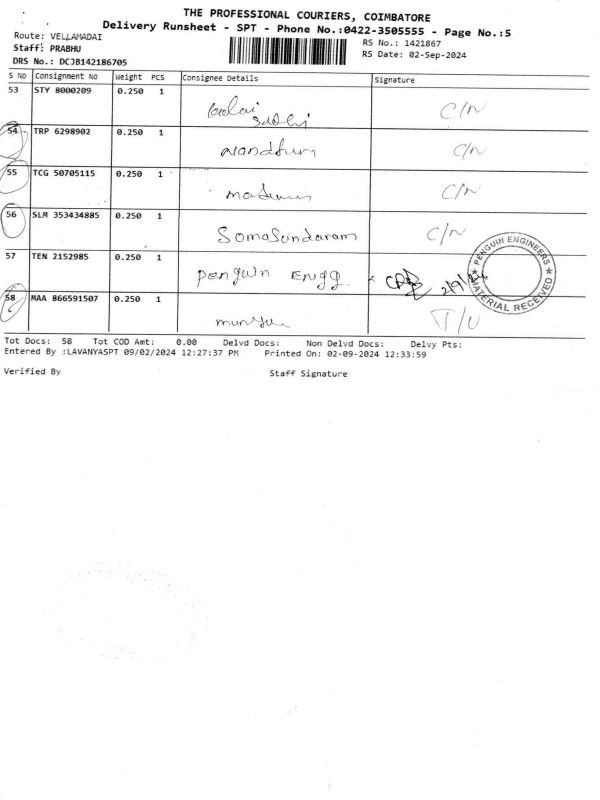 THE PROFESSIONAL COURIERS, COIMBATORE
Delivery Runsheet - SPT - Phone No.:0422-3505555 - Page No.:5
Route: VELLAMADAI
RS No.: 1421867
Staff: PRABHU
RS Date: 02-Sep-2024
DRS No.: DCJB142186705
S No Consignment No Weight PCS Consignee Details Signature
53 STY 8000209 0.250 1 C/N
54 TRP 6298902 0.250 1 C/N
55 TCG 50705115 0.250 1 C/N
56 SLM 353434885 0.250 1 Somasundaram C/N
57 TEN 2152985 0.250 1 Penguin Engg. 2/9/24
PENGUIN ENGINEERS
MATERIAL RECEIVED
58 MAA 866591507 0.250 1 T/U
Tot Docs: 58 Tot COD Amt: 0.00 Delvd Docs: Non Delvd Docs: Delvy Pts:
Entered By :LAVANYASPT 09/02/2024 12:27:37 PM Printed On: 02-09-2024 12:33:59
Verified By Staff Signature